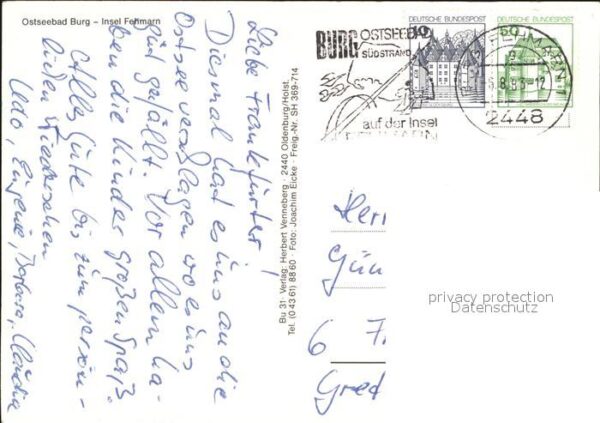 Ostseebad Burg – Insel Fehmarn
Liebe Frankfurter!
Diesmal hat es uns an die
Ostsee verschlagen wo es uns
gut gefällt. Vor allem ha-
ben die Kinder großen Spaß.
Alles Gute bis zum persön-
lichen Wiedersehen
Udo, Eugenie, Barbara, Claudia
Bu 31 Verlag: Herbert Venneberg · 2440 Oldenburg/Holst.
Tel. (0 43 61) 88 60 · Foto: Joachim Eicke · Freig.-Nr. SH 369-714
BURG OSTSEE
SÜDSTRAND
auf der Insel
FEHMARN
DEUTSCHE BUNDESPOST
DEUTSCHE BUNDESPOST
50
.8.83-12
2448
Herr
Gün
6 F
Gred
privacy protection
Datenschutz